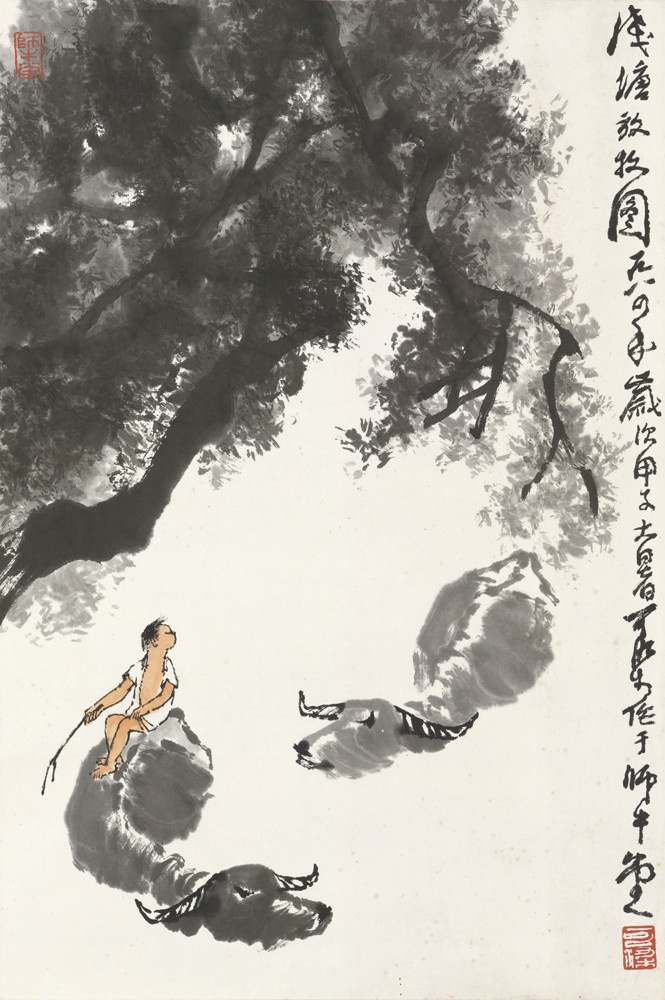 浅塘放牧图一九八四年岁次甲子大暑可染作于师牛堂
师牛堂
可染